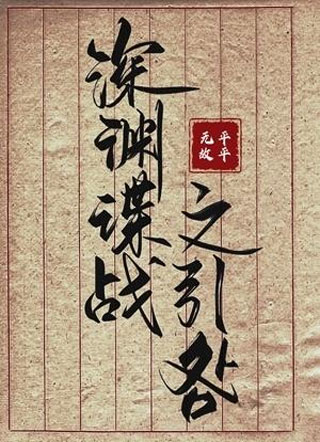 深渊谍战
之引咎
平平
无故